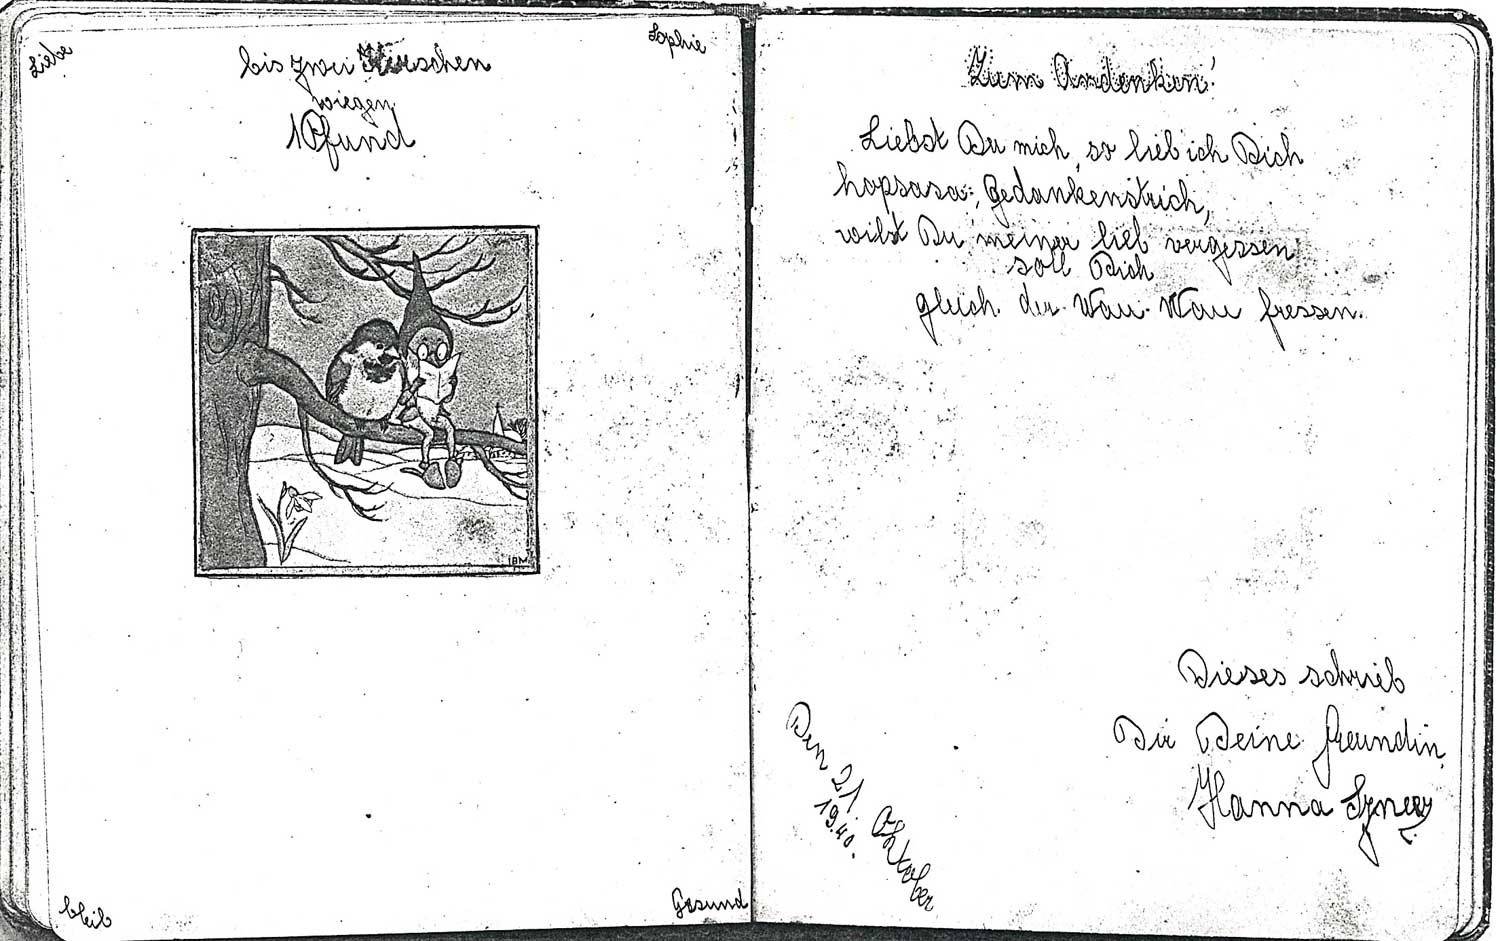 Liebe
Sophie
bis zwei Kirschen
wiegen
1 Pfund
IBM
bleib
Gesund
Zum Andenken!
Liebst Du mich, so lieb ich Dich
hopsasa, Gedankenstrich,
wilst Du meiner lieb vergessen
soll Dich
gleich der Wau-Wau fressen.
Dieses schrieb
Dir Deine freundin,
Hanna
Den 21. Oktober
1940.